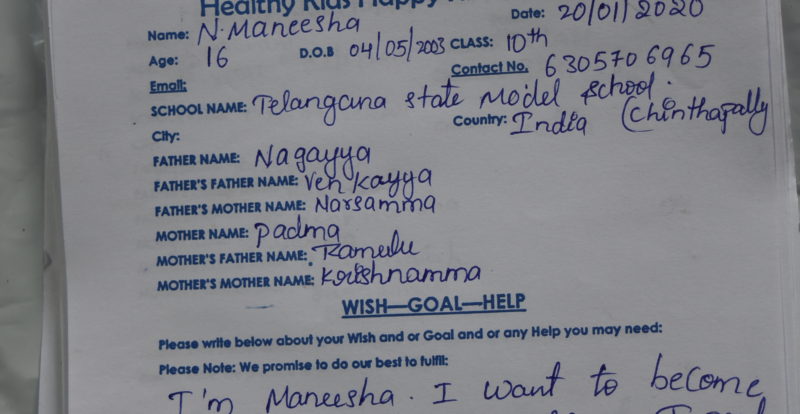 Healthy Kids Happy
Name: N. Maneesha Date: 20/01/2020
Age: 16 D.O.B 04/05/2003 CLASS: 10th
Email: Contact No. 6305706965
SCHOOL NAME: Telangana state Model School.
City: Country: India (Chinthapally
FATHER NAME: Nagayya
FATHER'S FATHER NAME: Venkayya
FATHER'S MOTHER NAME: Narsamma
MOTHER NAME: Padma
MOTHER'S FATHER NAME: Ramulu
MOTHER'S MOTHER NAME: Krishnamma
WISH—GOAL—HELP
Please write below about your Wish and or Goal and or any Help you may need:
Please Note: We promise to do our best to fulfil:
I'm Maneesha. I want to become